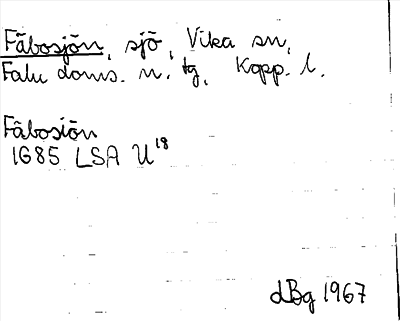 Fäbosjön, sjö, Vika sn,
Falu doms. n. tg, Kopp. l.
Fäbosiön
1685 LSA U 18
dBg 1967